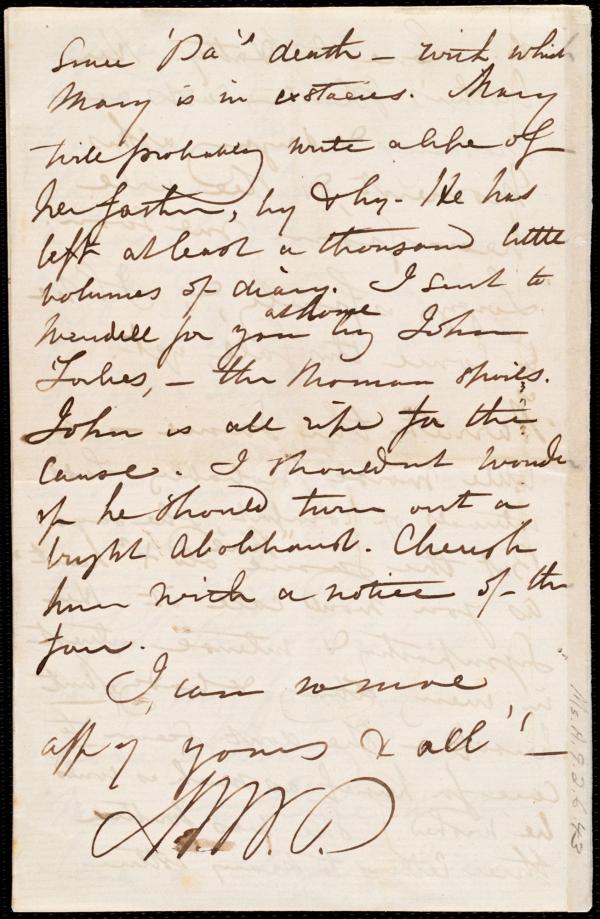 since 'Pa's death – with which
Mary is in exstacies. Mary
will probably write a life of
her father, by & by. He has
left at least a thousand little
volumes of diary. I sent to
at home
Wendell for you by John
Forbes, – the Roman spoils.
John is all ripe for the
cause. I shouldnt wonder
if he should turn out a
bright Abolitionist. Cherish
him with a notice of the
fair.
I can no more,
affy yours & all! –
Ms.A.9.2.6.43